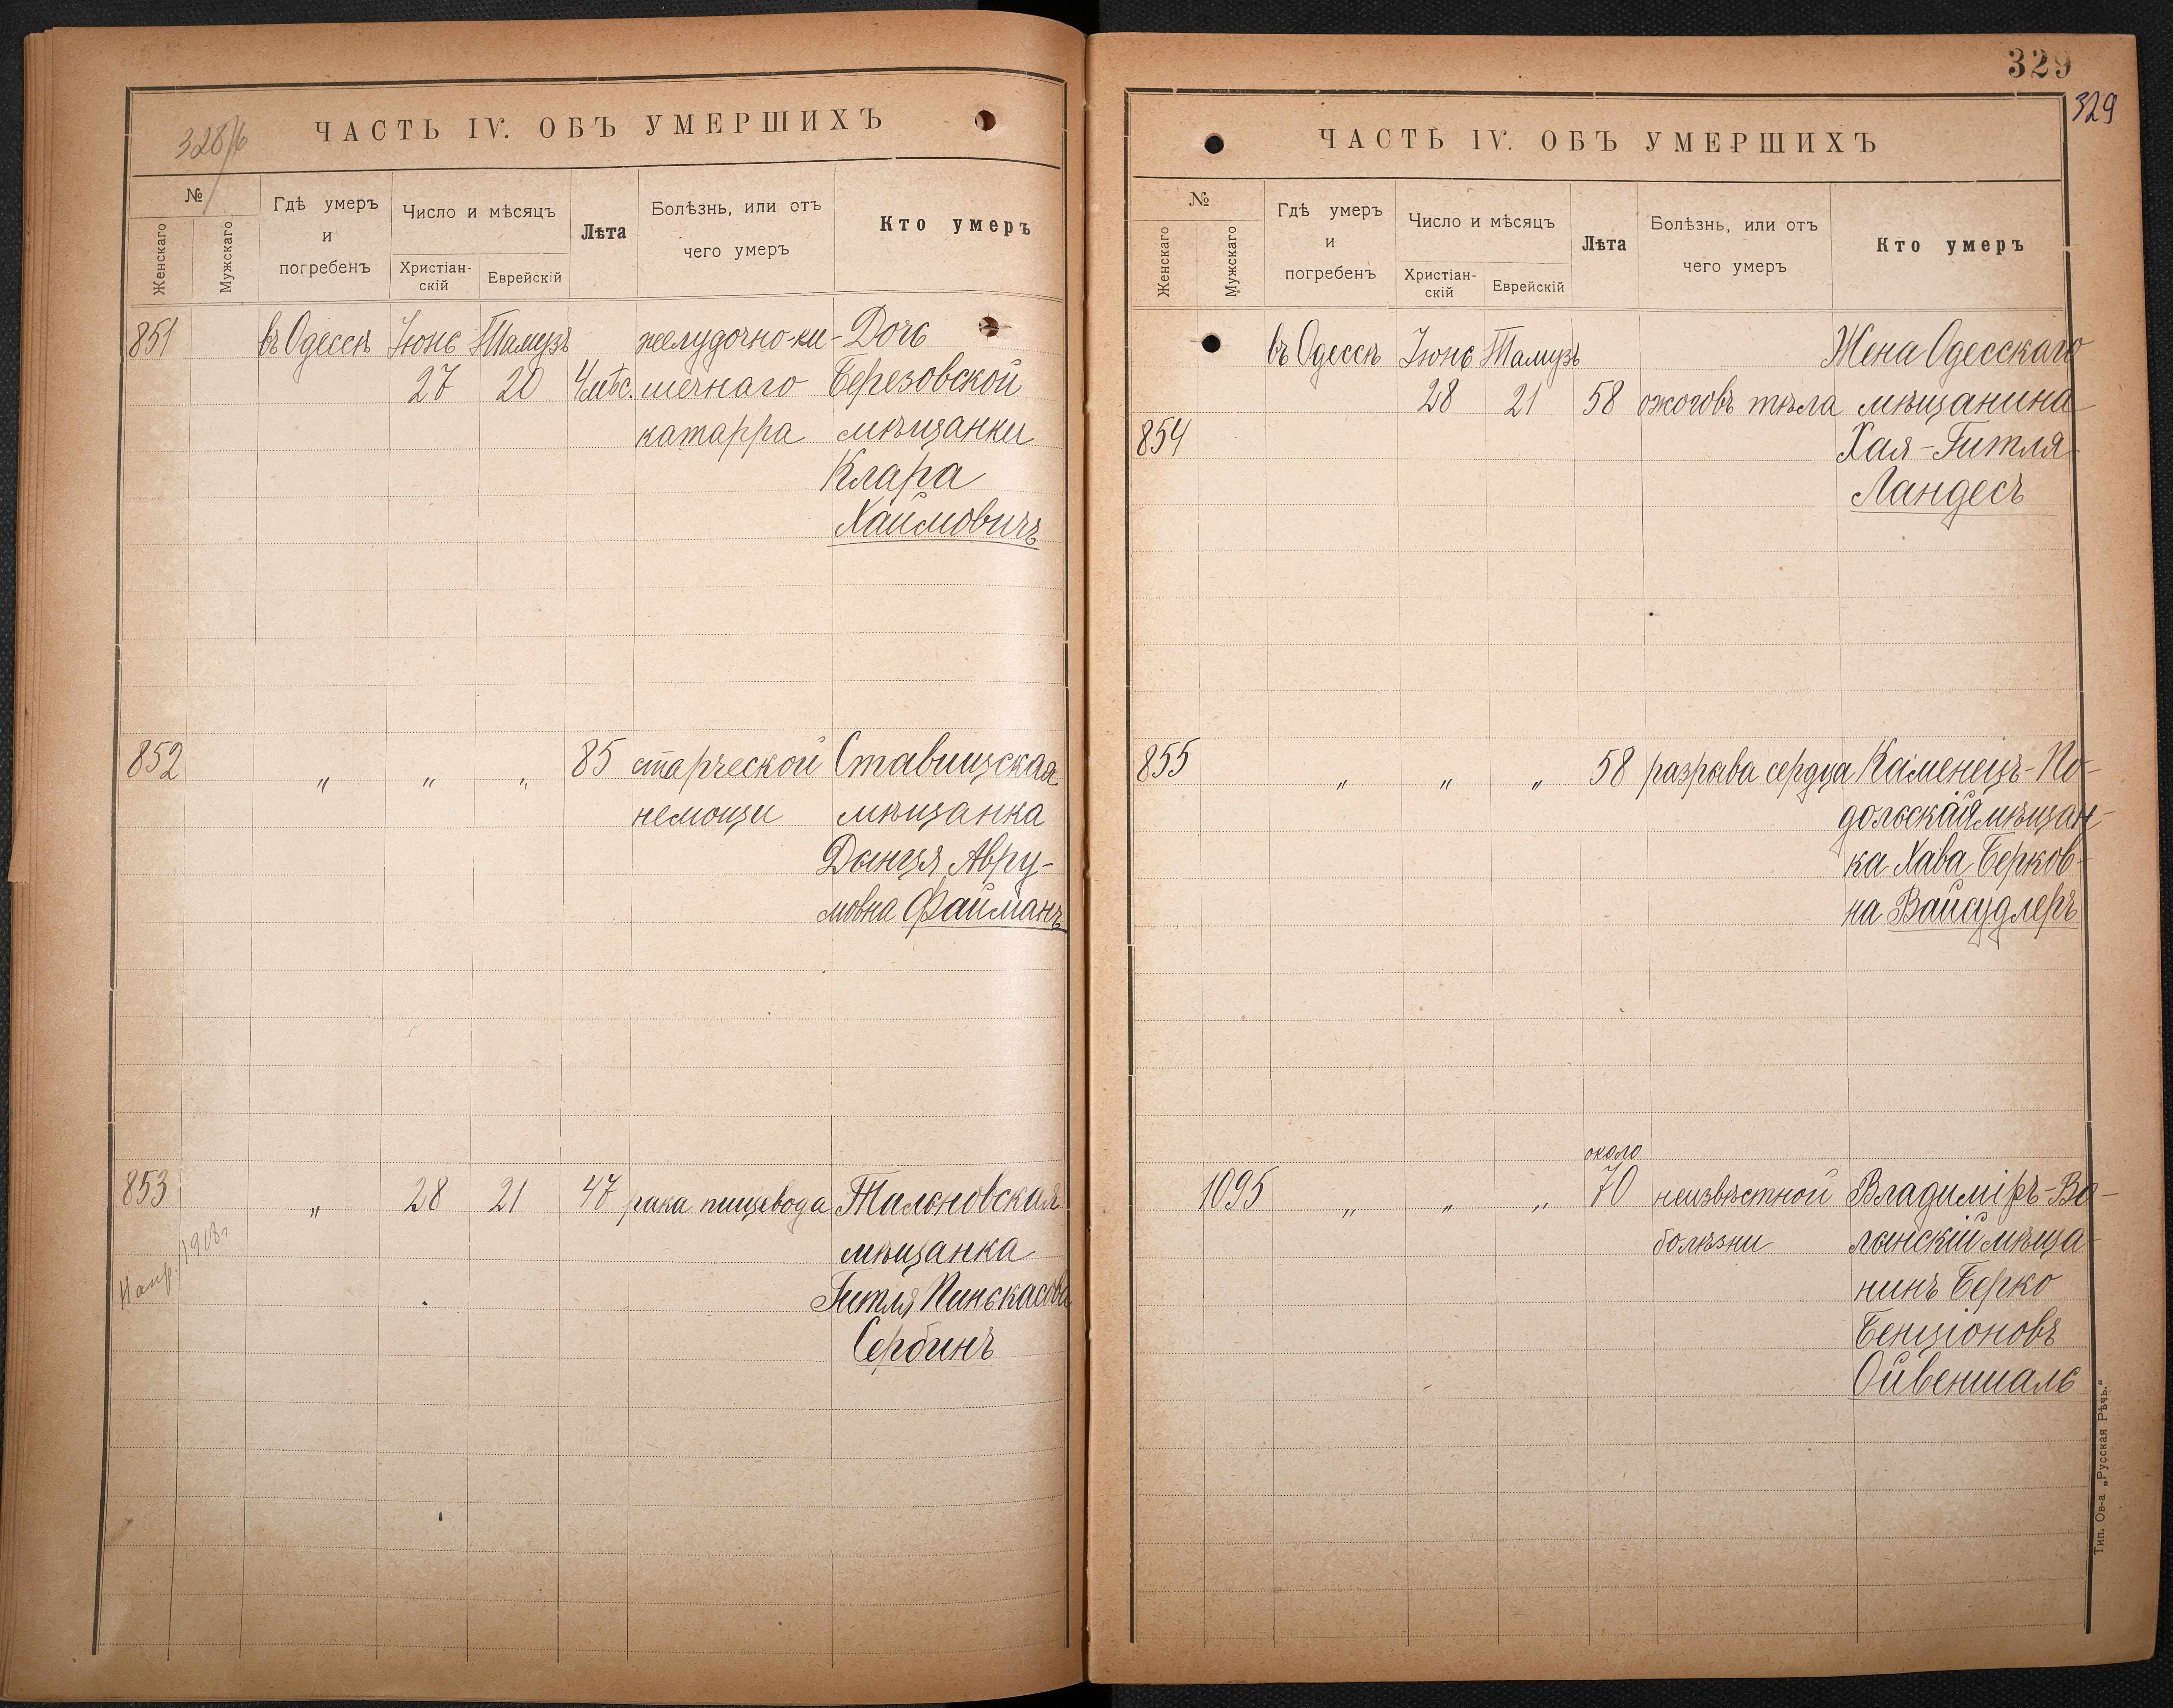 328/б
ЧАСТЬ IV. ОБЪ УМЕРШИХЪ
№
Женскаго
Мужскаго
Гдѣ умеръ
и
погребенъ
Число и мѣсяцъ
Христіан-
скій
Еврейскій
Лѣта
Болѣзнь, или отъ
чего умеръ
Кто умеръ
851 въ Одессѣ Іюнь Тамузъ желудочно-ки- Дочь
27 20 4 мѣс. шечнаго Березовской
катарра мѣщанки
Клара
Хаимовичъ
852 „ „ „ 85 старческой Ставищская
немощи мѣщанка
Дынця Авру-
мовна Файманъ
853 „ 28 21 47 рака пищевода Тальновская
мѣщанка
Гитля Пинькасова
Сербинъ
329
329
ЧАСТЬ IV. ОБЪ УМЕРШИХЪ
№
Женскаго
Мужскаго
Гдѣ умеръ
и
погребенъ
Число и мѣсяцъ
Христіан-
скій
Еврейскій
Лѣта
Болѣзнь, или отъ
чего умеръ
Кто умеръ
въ Одессѣ Іюнь Тамузъ Жена Одесскаго
28 21 58 ожоговъ тѣла мѣщанина
854 Хая-Гитля
Ландесъ
855 „ „ „ 58 разрыва сердца Каменецъ-По-
дольская мѣщан-
ка Хава Берков-
на Вайсудлеръ
около
1095 „ „ „ 70 неизвѣстной Владиміръ-Во-
болѣзни лынскій мѣща-
нинъ Берко
Бенціоновъ
Ойвеншаль
Тип. Ов-а „Русская Рѣчь.“